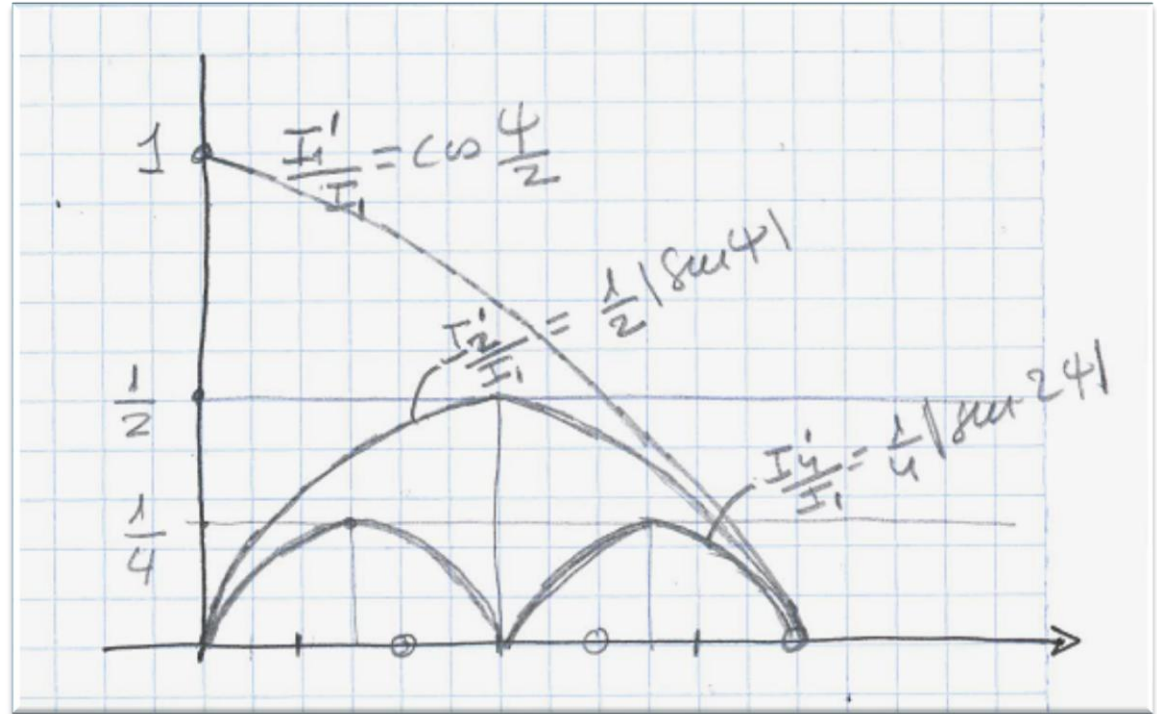 1
I₁'/I₁ = cos ψ/2
I₂'/I₁ = 1/2 |sin ψ|
1/2
I₄'/I₁ = 1/4 |sin 2ψ|
1/4